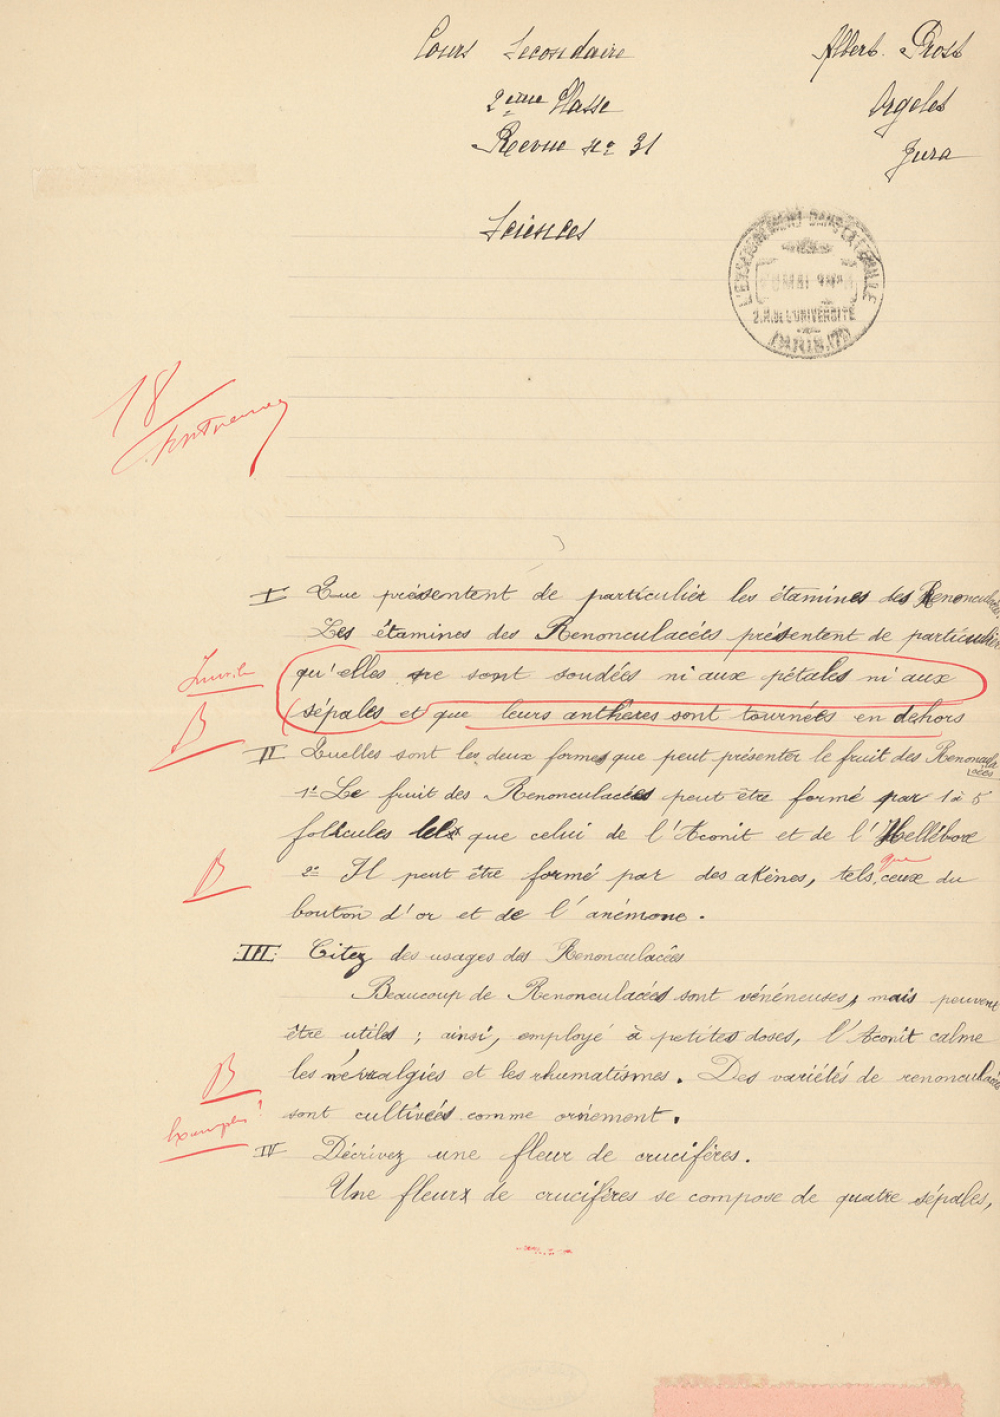 Cours Secondaire
Albert Prost
2ème Classe
Orgelet
Revue nº 31
Jura
Sciences
L'ENSEIGNEMENT DANS LA FAMILLE
MAI
2.R.DE L'UNIVERSITÉ
PARIS.(7e)
18
I Que présentent de particulier les étamines des Renonculacées
Les étamines des Renonculacées présentent de particulier
Inutile
qu'elles ne sont soudées ni aux pétales ni aux
sépales et que leurs anthères sont tournées en dehors
B
II Quelles sont les deux formes que peut présenter le fruit des Renonculacées
1º Le fruit des Renonculacées peut être formé par 1 à 5
follicules tels que celui de l'Aconit et de l'Hellébore
que
B
2º Il peut être formé par des akènes, tels ceux du
bouton d'or et de l'anémone.
III Citez des usages des Renonculacées
Beaucoup de Renonculacées sont vénéneuses, mais peuvent
être utiles ; ainsi, employé à petites doses, l'Aconit calme
B
les névralgies et les rhumatismes. Des variétés de renonculacées
Exemples ?
sont cultivées comme ornement.
IV Décrivez une fleur de crucifères.
Une fleur de crucifères se compose de quatre sépales,